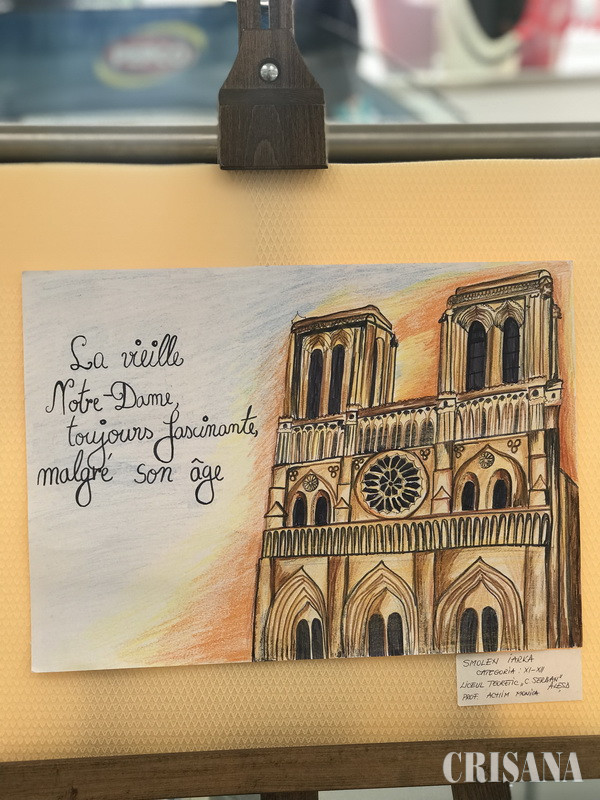 La vieille
Notre-Dame,
toujours fascinante,
malgré son âge
SMOLEN IARKA
CATEGORIA: XI-XII
LICEUL TEORETIC „C. SERBAN"
ALEȘD
PROF. ACHIM MONICA
CRISANA